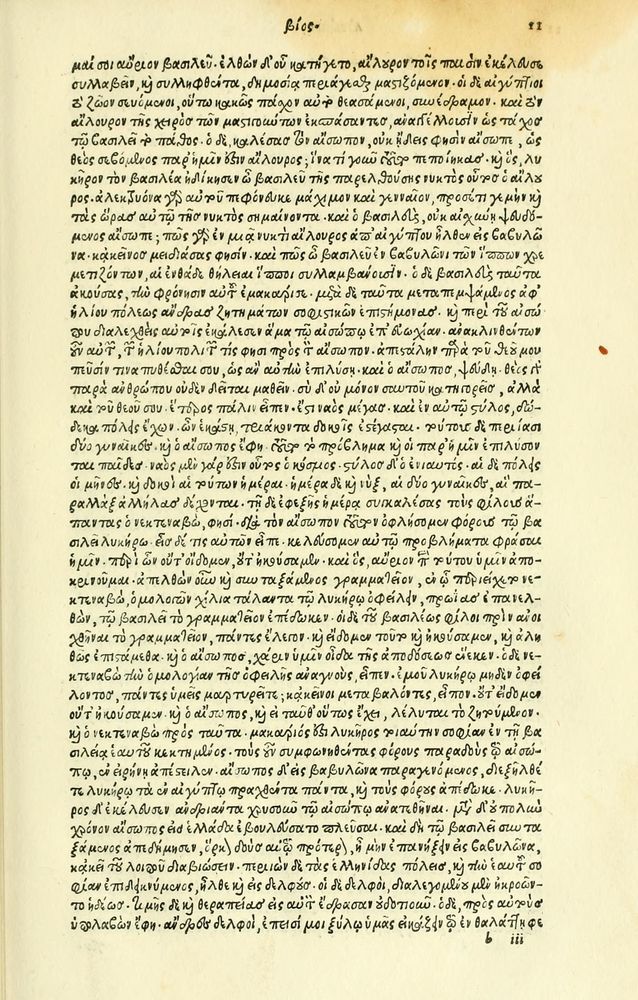 βίος.
11
μαί σοι αὔριον βασιλεῦ. ἐλθὼν δ' οὗ κατήγετο, αἴλουρον τοῖς παισὶν ἐκέλευσε
συλλαβεῖν, καὶ συλληφθέντα, δημοσίᾳ περιάγεσθαι μαστιζόμενον. οἱ δὲ αἰγύπτιοι
τὸ ζῶον σεβόμενοι, οὕτω κακῶς πάσχον αὐτὸ θεασάμενοι, συνέδραμον. καὶ τὸν
αἴλουρον τῆς χειρὸς τῶν μαστιζόντων ἐκσπάσαντες, ἀναγγέλλουσιν ὡς τάχος
τῷ βασιλεῖ τὸ πάθος. ὁ δὲ, καλέσας τὸν αἴσωπον, οὐκ ᾔδεις φησὶν αἴσωπε, ὡς
θεὸς σεβόμενος παρ' ἡμῖν ἐστιν αἴλουρος; ἵνα τί γοῦν τοῦτο πεποίηκας. καὶ ὃς, λυ
κῆρον τὸν βασιλέα ἠδίκησεν ὦ βασιλεῦ τῆς παρελθούσης νυκτὸς οὗτος ὁ αἴλου
ρος. ἀλεκτρυόνα γὰρ αὐτοῦ πεφόνευκε μάχιμον καὶ γενναῖον, προσέτι γε μὴν καὶ
τὰς ὥρας αὐτῷ τῆς νυκτὸς σημαίνοντα. καὶ ὁ βασιλεὺς, οὐκ αἰσχύνῃ ψευδό-
μενος αἴσωπε; πῶς γὰρ ἐν μιᾷ νυκτὶ αἴλουρος ἀπ' αἰγύπτου ἦλθεν εἰς βαβυλῶ
να. κἀκεῖνος μειδιάσας φησὶν. καὶ πῶς ὦ βασιλεῦ ἐν βαβυλῶνι τῶν ἵππων χρε
μετιζόντων, αἱ ἐνθάδε θήλειαι ἵπποι συλλαμβάνουσιν. ὁ δὲ βασιλεὺς ταῦτα
ἀκούσας, τὴν φρόνησιν αὐτοῦ ἐμακάρισε. μετὰ δὲ ταῦτα μεταπεμψάμενος ἀφ'
ἡλίου πόλεως ἄνδρας ζητημάτων σοφιστικῶν ἐπιστήμονας. καὶ περὶ τοῦ αἰσώ
που διαλεχθεὶς αὐτοῖς ἐκάλεσεν ἅμα τῷ αἰσώπῳ ἐπ' εὐωχίαν. ἀνακλινθέντων
οὖν αὐτῶν, τῶν ἡλιουπολιτῶν τίς φησι πρὸς τὸν αἴσωπον. ἀπεστάλην παρὰ τοῦ θεοῦ μου
πεῦσίν τινα πυθέσθαι σου, ὡς ἂν αὐτὴν ἐπιλύσῃ. καὶ ὁ αἴσωπος, ψεύδῃ. θεὸς γὰρ
παρὰ ἀνθρώπου οὐδὲν δεῖται μαθεῖν. σὺ δ' οὐ μόνον σαυτοῦ κατηγορεῖς, ἀλλὰ
καὶ τοῦ θεοῦ σου. ἕτερος πάλιν εἶπεν. ἔστι ναὸς μέγας. καὶ ἐν αὐτῷ στύλος, δώ-
δεκα πόλεις ἔχων. ὧν ἑκάστη, τριάκοντα δοκοῖς ἐστέγασται. τούτους δὲ περιΐασι
δύο γυναῖκες. καὶ ὁ αἴσωπος ἔφη. τοῦτο τὸ πρόβλημα καὶ οἱ παρ' ἡμῖν ἐπιλύσον
ται παῖδες. ναὸς μὲν γάρ ἐστιν οὗτος ὁ κόσμος. στύλος δ' ὁ ἐνιαυτὸς. αἱ δὲ πόλεις
οἱ μῆνες. καὶ δοκοὶ αἱ τούτων ἡμέραι. ἡμέρα δὲ καὶ νὺξ, αἱ δύο γυναῖκες, αἳ πα-
ραλλὰξ ἀλλήλας δέχονται. τῇ δὲ ἐφεξῆς ἡμέρᾳ συγκαλέσας τοὺς φίλους ἅ-
παντας ὁ νεκτεναβὼ, φησὶ. διὰ τὸν αἴσωπον τοῦτον ὀφλήσομεν φόρους τῷ βα
σιλεῖ λυκήρῳ. εἷς δέ τις αὐτῶν εἶπε. κελεύσομεν αὐτῷ προβλήματα φράσαι
ἡμῖν. περὶ ὧν οὔτ' οἴδαμεν, οὔτ' ἠκούσαμεν. καὶ ὃς, αὔριον περὶ τούτου ὑμῖν ἀπο-
κρινοῦμαι. ἀπελθὼν οὖν καὶ συνταξάμενος γραμματεῖον, ἐν ᾧ περιείχετο νε-
κτεναβὼ, ὁμολογῶν χίλια τάλαντα τῷ λυκήρῳ ὀφείλειν, πρωΐας ἐπανελ-
θὼν, τῷ βασιλεῖ τὸ γραμματεῖον ἐπέδωκεν. οἱ δὲ τοῦ βασιλέως φίλοι πρὶν ἀνοι
χθῆναι τὸ γραμματεῖον, πάντες ἔλεγον. καὶ εἴδομεν τοῦτο καὶ ἠκούσαμεν, καὶ ἀλη
θῶς ἐπιστάμεθα. καὶ ὁ αἴσωπος, χάριν ὑμῖν οἶδα τῆς ἀποδόσεως ἕνεκεν. ὁ δὲ νε-
κτεναβὼ τὴν ὁμολογίαν τῆς ὀφειλῆς ἀναγνοὺς, εἶπεν. ἐμοῦ λυκήρῳ μηδὲν ὀφεί
λοντος, πάντες ὑμεῖς μαρτυρεῖτε; κἀκεῖνοι μεταβαλόντες, εἶπον. οὔτ' εἴδομεν
οὔτ' ἠκούσαμεν. καὶ ὁ αἴσωπος, καὶ εἰ ταῦθ' οὕτως ἔχει, λέλυται τὸ ζητούμενον.
καὶ ὁ νεκτεναβὼ πρὸς ταῦτα. μακάριός ἐστι λυκῆρος τοιαύτην σοφίαν ἐν τῇ βα
σιλείᾳ ἑαυτοῦ κεκτημένος. τοὺς οὖν συμφωνηθέντας φόρους παραδοὺς τῷ αἰσώ-
πῳ, ἐν εἰρήνῃ ἀπέστειλεν. αἴσωπος δ' εἰς βαβυλῶνα παραγενόμενος, διεξῆλθέ
τε λυκήρῳ τὰ ἐν αἰγύπτῳ πραχθέντα πάντα, καὶ τοὺς φόρους ἀπέδωκε. λυκῆ-
ρος δ' ἐκέλευσεν ἀνδριάντα χρυσοῦν τῷ αἰσώπῳ ἀνατεθῆναι. μετὰ δ' οὐ πολὺν
χρόνον αἴσωπος εἰς ἑλλάδα ἐβουλεύσατο πλεῦσαι. καὶ δὴ τῷ βασιλεῖ συντα
ξάμενος ἀπεδήμησεν, ὅρκους δοὺς αὐτῷ πρότερον, ἦ μὴν ἐπανήξειν εἰς βαβυλῶνα,
κἀκεῖ τοῦ λοιποῦ διαβιώσειν. περιιὼν δὲ τὰς ἑλληνίδας πόλεις, καὶ τὴν ἑαυτοῦ σο
φίαν ἐπιδεικνύμενος, ἦλθε καὶ εἰς δελφοὺς. οἱ δὲ δελφοὶ, διαλεγομένου μὲν ἠκροῶν-
το ἡδέως. τιμῆς δὲ καὶ θεραπείας εἰς αὐτὸν ἔδρασαν οὐδοτιοῦν. ὁ δὲ, πρὸς αὐτοὺς
ὑπολαβὼν ἔφη. ἄνδρες δελφοὶ, ἔπεισί μοι ξύλῳ ὑμᾶς εἰκάζειν τῷ ἐν θαλάττῃ φε
b iii